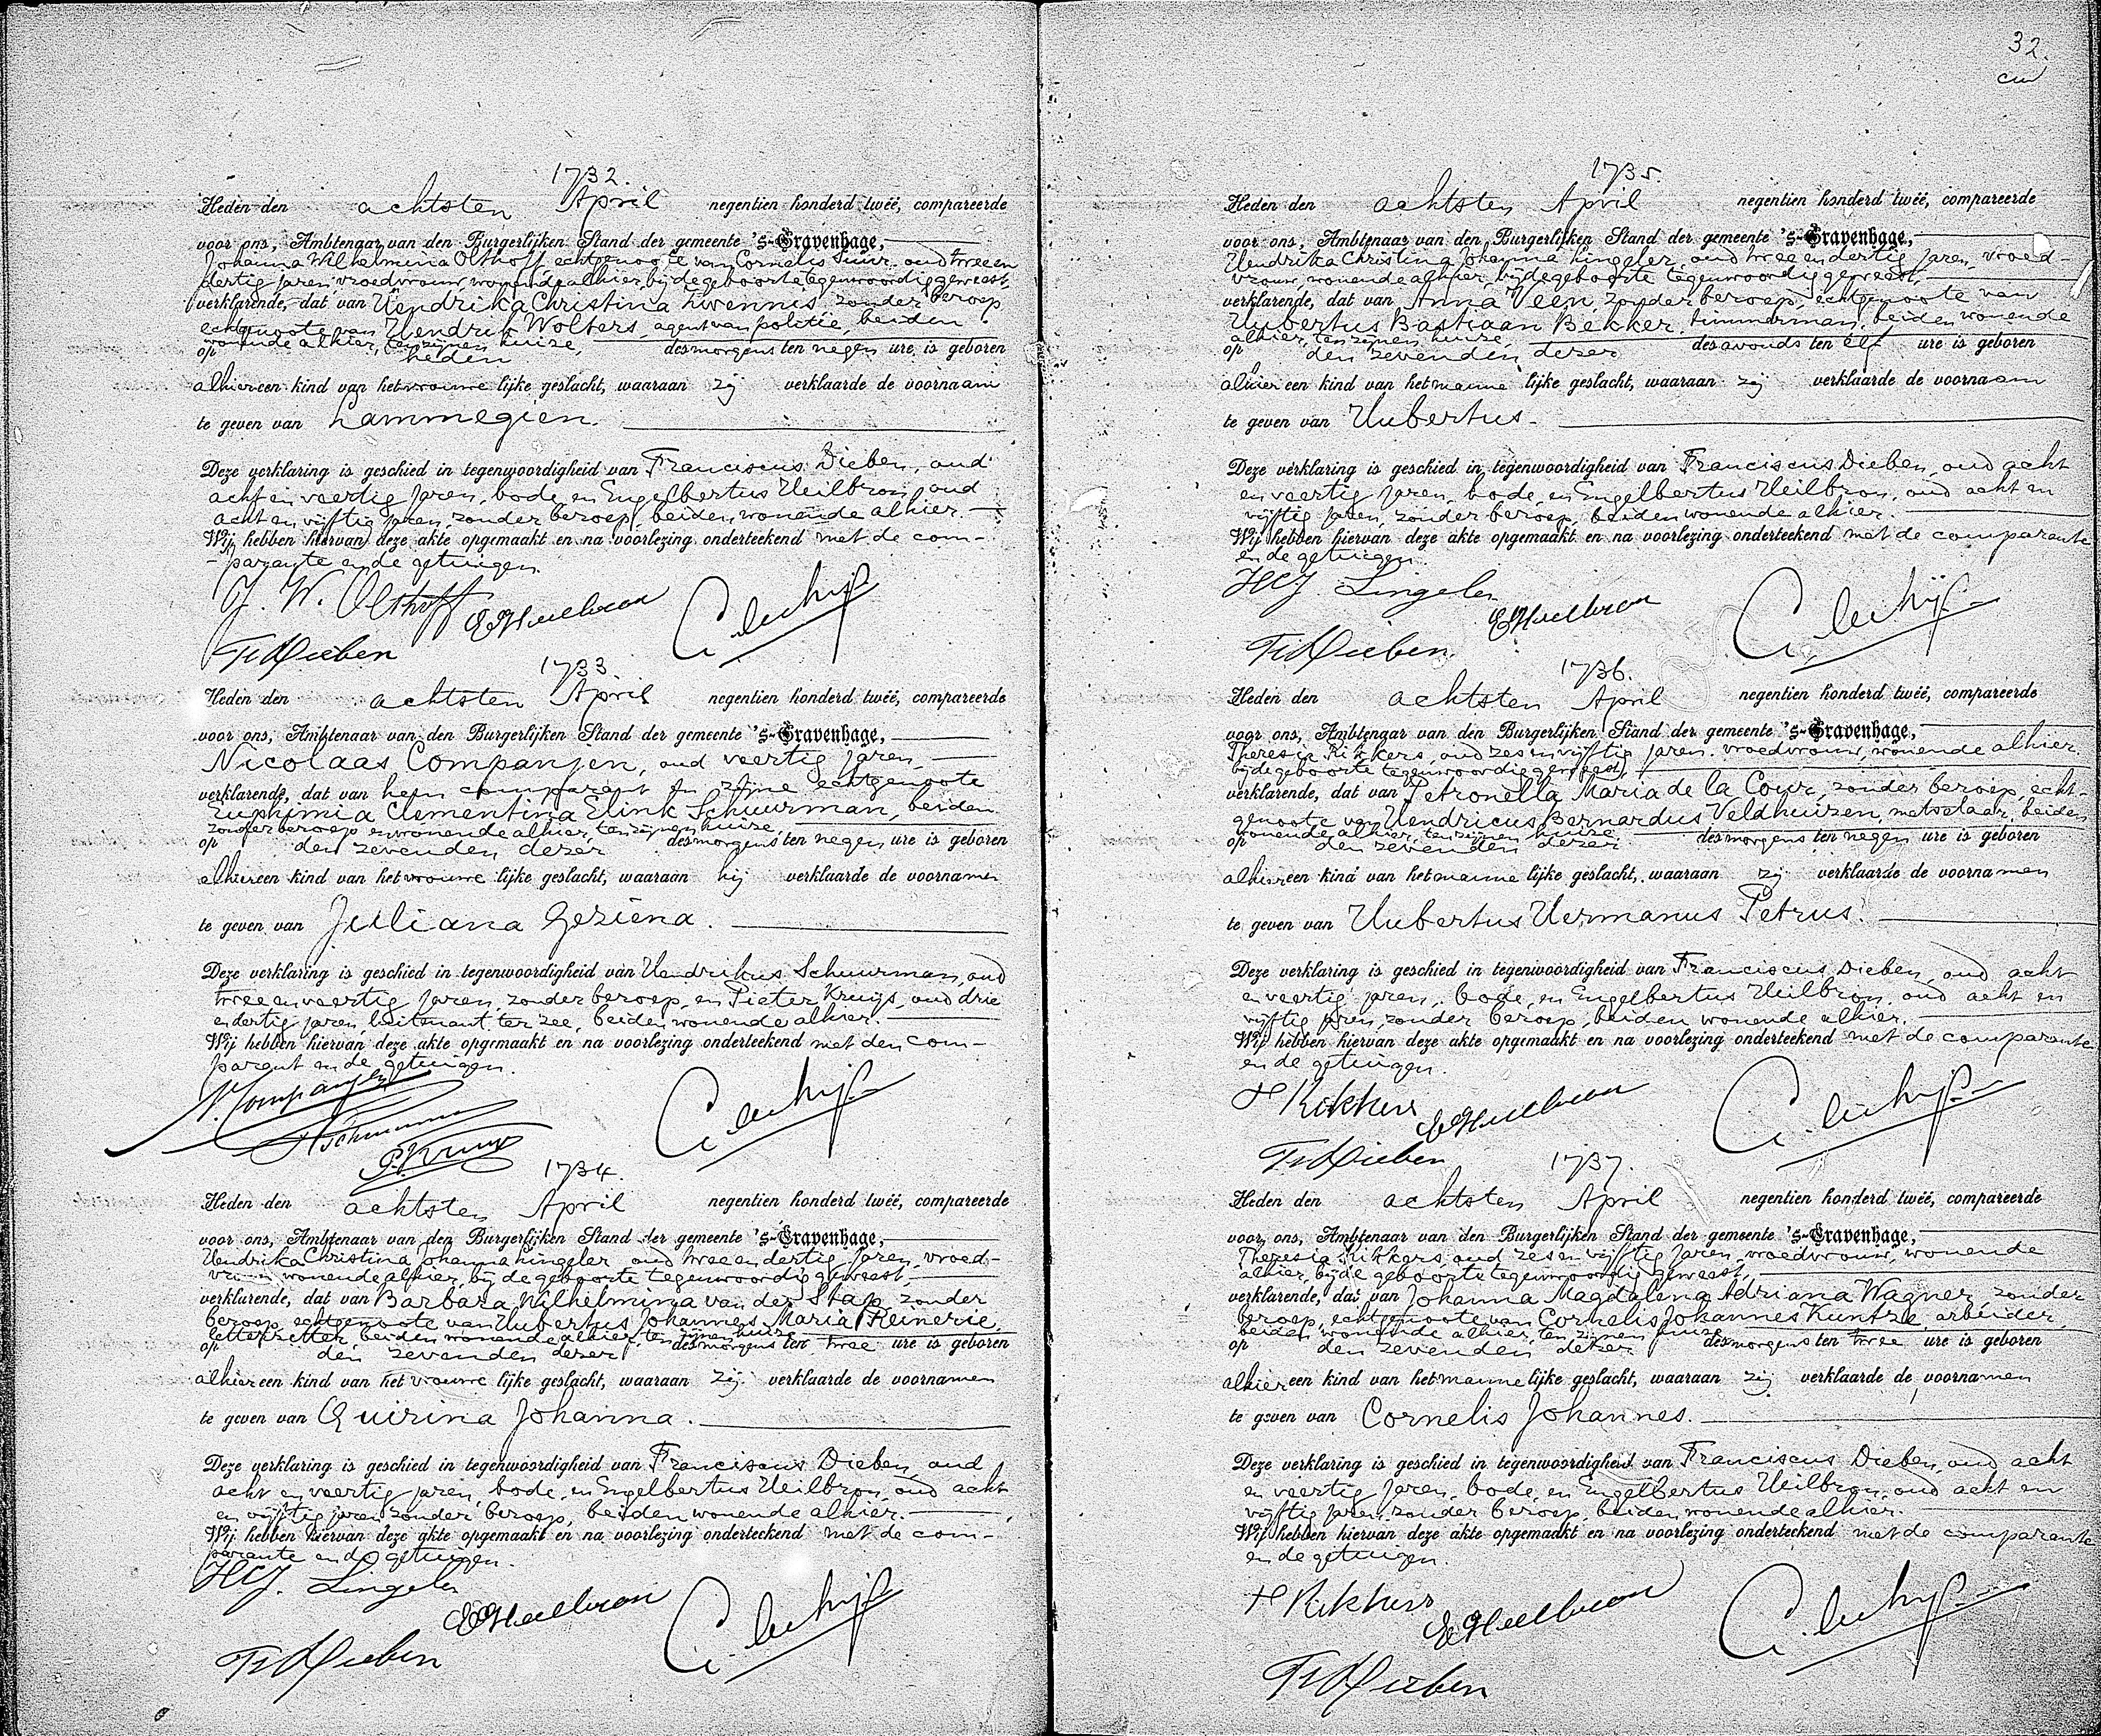 1732.
Heden den achtsten April negentien honderd twee, compareerde
voor ons, Ambtenaar van den Burgerlijken Stand der gemeente 's-Gravenhage,
Johanna Wilhelmina Olthoff, echtgenoote van Cornelis oud twee en
dertig jaren, vroedvrouw, wonende alhier, bij de geboorte tegenwoordig geweest,
verklarende, dat van Hendrika Christina zonder beroep
echtgenoote van Hendrik Wolters, agent van politie, beiden
wonende alhier, ten zijnen huize,
op heden des morgens ten negen ure is geboren
alhier een kind van het vrouwelijke geslacht, waaraan zij verklaarde de voornaam
te geven van Lammegien.
Deze verklaring is geschied in tegenwoordigheid van Franciscus Dieben, oud
acht en veertig jaren, bode, en Engelbertus Heilbron, oud
acht en vijftig jaren, zonder beroep, beiden wonende alhier.
Wij hebben hiervan deze akte opgemaakt en na voorlezing onderteekend met de com-
-parante en de getuigen.
J. W. Olthoff E Heilbron
Fr Dieben
1733.
Heden den achtsten April negentien honderd twee, compareerde
voor ons, Ambtenaar van den Burgerlijken Stand der gemeente 's-Gravenhage,
Nicolaas Companjen, oud veertig jaren,
verklarende, dat van hem comparant en zijne echtgenoote
Euphimia Clementina Elink Schuurman, beiden
zonder beroep en wonende alhier, ten zijnen huize,
op den zevenden dezer des morgens ten negen ure is geboren
alhier een kind van het vrouwelijke geslacht, waaraan hij verklaarde de voornamen
te geven van Juliana Geziena.
Deze verklaring is geschied in tegenwoordigheid van Hendrikus Schuurman, oud
twee en veertig jaren, zonder beroep, en Pieter Kruijs, oud drie
en dertig jaren, luitenant ter zee, beiden wonende alhier.
Wij hebben hiervan deze akte opgemaakt en na voorlezing onderteekend met den com-
parant en de getuigen.
N. Companjen
P. Kruijs
1734.
Heden den achtsten April negentien honderd twee, compareerde
voor ons, Ambtenaar van den Burgerlijken Stand der gemeente 's-Gravenhage,
Hendrika Christina Johanna Lingeler, oud twee en dertig jaren, vroed-
vrouw, wonende alhier, bij de geboorte tegenwoordig geweest,
verklarende, dat van Barbara Wilhelmina van der Stap, zonder
beroep, echtgenoote van Hubertus Johannes Maria Reinerie,
letterzetter, beiden wonende alhier, ten zijnen huize,
op den zevenden dezer des morgens ten twee ure is geboren
alhier een kind van het vrouwelijke geslacht, waaraan zij verklaarde de voornamen
te geven van Quirina Johanna.
Deze verklaring is geschied in tegenwoordigheid van Franciscus Dieben, oud
acht en veertig jaren, bode, en Engelbertus Heilbron, oud acht
en vijftig jaren, zonder beroep, beiden wonende alhier.
Wij hebben hiervan deze akte opgemaakt en na voorlezing onderteekend met de com-
parante en de getuigen.
HCJ. Lingeler
E Heilbron
Fr Dieben
32.
1735.
Heden den achtsten April negentien honderd twee, compareerde
voor ons, Ambtenaar van den Burgerlijken Stand der gemeente 's-Gravenhage,
Hendrika Christina Johanna Lingeler, oud twee en dertig jaren, vroed-
vrouw, wonende alhier, bij de geboorte tegenwoordig geweest,
verklarende, dat van Anna Veen, zonder beroep, echtgenoote van
Hubertus Bastiaan Bekker, timmerman, beiden wonende
alhier, ten zijnen huize,
op den zevenden dezer des avonds ten elf ure is geboren
alhier een kind van het mannelijke geslacht, waaraan zij verklaarde de voornaam
te geven van Hubertus.
Deze verklaring is geschied in tegenwoordigheid van Franciscus Dieben, oud acht
en veertig jaren, bode, en Engelbertus Heilbron, oud acht en
vijftig jaren, zonder beroep, beiden wonende alhier.
Wij hebben hiervan deze akte opgemaakt en na voorlezing onderteekend met de comparante
en de getuigen.
HCJ. Lingeler
E Heilbron
Fr Dieben
1736.
Heden den achtsten April negentien honderd twee, compareerde
voor ons, Ambtenaar van den Burgerlijken Stand der gemeente 's-Gravenhage,
Theresia Rikkers, oud zes en vijftig jaren, vroedvrouw, wonende alhier,
bij de geboorte tegenwoordig geweest,
verklarende, dat van Petronella Maria de la Cour, zonder beroep, echt-
genoote van Hendricus Bernardus Veldhuizen, metselaar, beiden
wonende alhier, ten zijnen huize,
op den zevenden dezer des morgens ten negen ure is geboren
alhier een kind van het mannelijke geslacht, waaraan zij verklaarde de voornamen
te geven van Hubertus Hermanus Petrus.
Deze verklaring is geschied in tegenwoordigheid van Franciscus Dieben, oud acht
en veertig jaren, bode, en Engelbertus Heilbron, oud acht en
vijftig jaren, zonder beroep, beiden wonende alhier.
Wij hebben hiervan deze akte opgemaakt en na voorlezing onderteekend met de comparante
en de getuigen.
Rikkers E Heilbron
Fr Dieben
1737.
Heden den achtsten April negentien honderd twee, compareerde
voor ons, Ambtenaar van den Burgerlijken Stand der gemeente 's-Gravenhage,
Theresia Rikkers, oud zes en vijftig jaren, vroedvrouw, wonende
alhier, bij de geboorte tegenwoordig geweest,
verklarende, dat van Johanna Magdalena Adriana Wagner, zonder
beroep, echtgenoote van Cornelis Johannes Kuntze, arbeider,
beiden wonende alhier, ten zijnen huize,
op den zevenden dezer des morgens ten twee ure is geboren
alhier een kind van het mannelijke geslacht, waaraan zij verklaarde de voornamen
te geven van Cornelis Johannes.
Deze verklaring is geschied in tegenwoordigheid van Franciscus Dieben, oud acht
en veertig jaren, bode, en Engelbertus Heilbron, oud acht en
vijftig jaren, zonder beroep, beiden wonende alhier.
Wij hebben hiervan deze akte opgemaakt en na voorlezing onderteekend met de comparante
en de getuigen.
Rikkers
E Heilbron
Fr Dieben